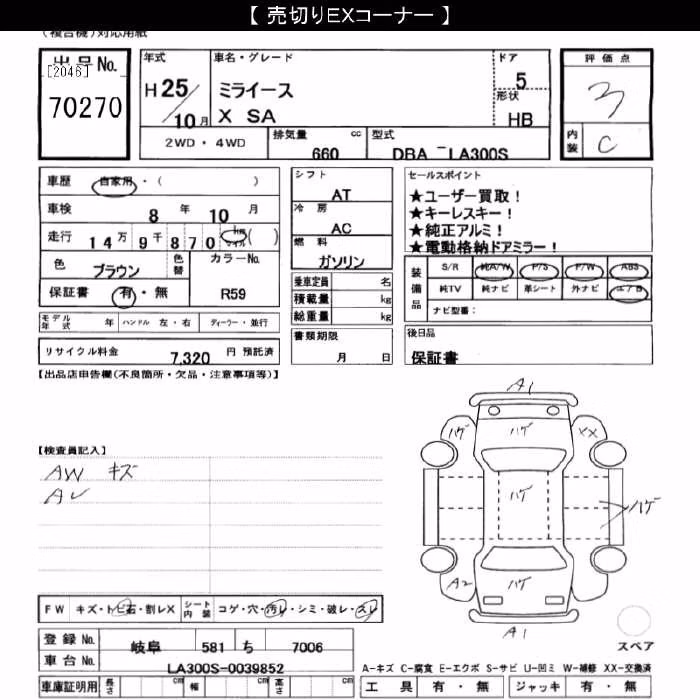 【 売切りEXコーナー 】
(複合機)対応用紙
出品No.
[2046]
70270
年式
H 25/10月
車名・グレード
ミライース
X SA
ドア
5
形状
HB
評価点
3
内装
C
2WD・4WD
排気量 cc
660
型式
DBA － LA300S
車歴 自家用・( )
車検 8 年 10 月
走行 14万 9千 870 km マイル ( )
色 ブラウン 色替
カラーNo.
R59
保証書 有・無
モデル年式 年 ハンドル 左・右 ディーラー・並行
リサイクル料金 7,320 円 預託済
シフト
AT
冷房
AC
燃料
ガソリン
乗車定員 名
積載量 kg
総重量 kg
書類期限
月 日
セールスポイント
★ユーザー買取！
★キーレスキー！
★純正アルミ！
★電動格納ドアミラー！
装備品
S/R 純A/W P/S P/W ABS
純TV 純ナビ 革シート 外ナビ エアB
ナビ型番：
後日品
保証書
【出品店申告欄(不良箇所・欠品・注意事項等)】
【検査員記入】
AW キズ
A1
ハゲ
ハゲ
XX
ハゲ
ハゲ
A2
ハゲ
A1
スペア
FW キズ・トビ石・割レX シート内装 コゲ・穴・汚レ・シミ・破レ・スレ
登録No. 岐阜 581 ち 7006
車台No. LA300S-0039852
車庫証明用 長さ cm 幅 cm 高さ cm
A-キズ C-腐食 E-エクボ S-サビ U-凹ミ W-補修 XX-交換済
工具 有・無 ジャッキ 有・無